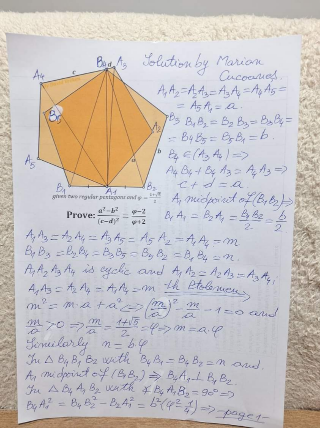 Solution by Marian
Cucoaneș.
A₁A₂=A₂A₃=A₃A₄=A₄A₅=
=A₅A₁=a.
B₁B₂=B₂B₃=B₃B₄=
=B₄B₅=B₅B₁=b.
B₄∈(A₃A₄)⇒
A₄B₄+B₄A₃=A₄A₃⇒
c+d=a
A₁ midpoint of (B₁B₂)⇒
B₁A₁=B₂A₁=B₁B₂/2=b/2
A₄
A₅
B₄
A₅
A₂
B₁
A₁
B₂
c
d
a
b
given two regular pentagons and φ=
Prove: (a²−b²)/(c−d)²=(φ−2)/(φ+2)
A₁A₃=A₂A₄=A₃A₅=A₅A₂=A₁A₄=m
B₁B₃=B₂B₄=B₃B₅=B₅B₂=B₁B₄=n.
A₁A₂A₃A₄ is cyclic and A₁A₂=A₂A₃=A₃A₄,
A₁A₃=A₂A₄=A₁A₄=m. Th Ptolemeu ⇒
m²=m·a+a²⇒(m/a)²−m/a−1=0 and
m/a>0⇒m/a=(1+√5)/2=φ⇒m=a·φ
Similarly n=b·φ
In △B₄B₁B₂ with B₄B₁=B₄B₂=n and
A₁ midpoint of (B₁B₂)⇒B₄A₁⊥B₁B₂.
In △B₄A₁B₂ with ∢B₄A₁B₂=90°⇒
B₄A₁²=B₄B₂²−B₂A₁²=b²(φ²−1/4)⇒ page 1−